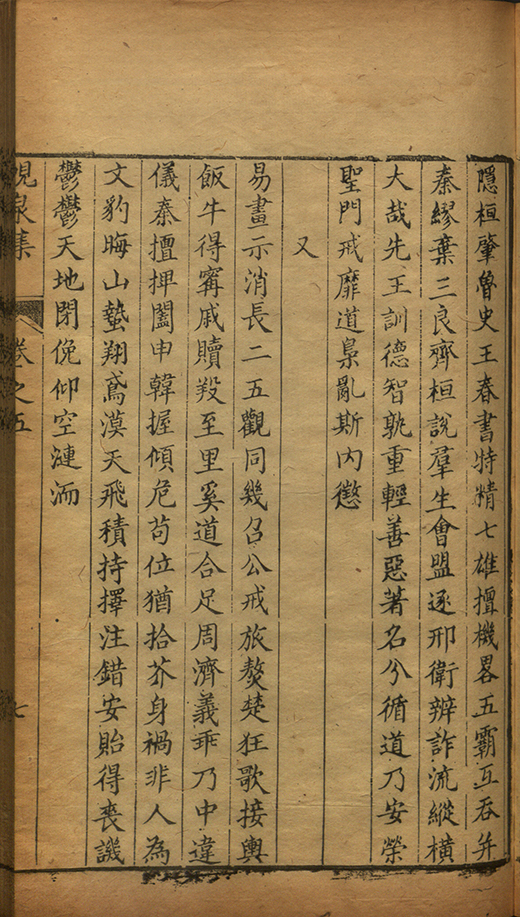 隱桓肇魯史王春書特精七雄擅機畧五霸互吞并
秦繆棄三良齊桓說羣生會盟逐邢衛辨詐流縱橫
大哉先王訓德智孰重輕善惡著名分循道乃安榮
聖門戒靡道梟亂斯內懲
又
易畫示消長二五觀同幾召公戒旅獒楚狂歌接輿
飯牛得甯戚贖羖至里奚道合足周濟義乖乃中違
儀秦擅押闔申韓握傾危苟位猶拾芥身禍非人為
文豹晦山蟄翔鳶漠天飛積持擇注錯安貽得喪譏
鬱鬱天地閉俛仰空漣洏
峴泉集
卷之五
七